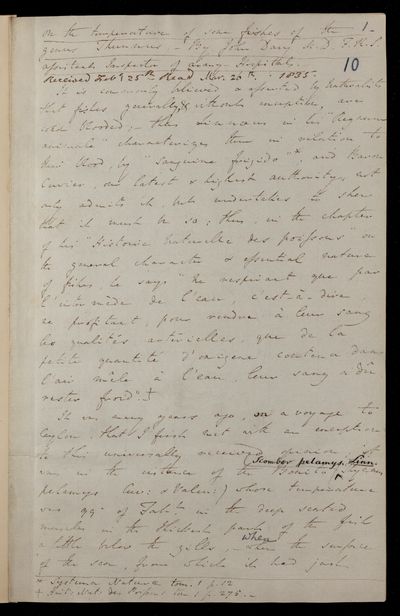 On the temperature of some fishes of the 1
genus Thunnus, - By John Davy M.D. F.R.S
assistant Inspector of Army Hospitals. 10
Received Feby 25th - Read Mar. 26th 1835.
It is commonly believed & asserted by Naturalists
that fishes generally, & without exception, are
cold blooded; - thus Linnaeus in his
characterizes them in relation to
their blood, by "sanguine frigido"*, and Baron
Cuvier, our latest & highest authority, not
only admits it, but undertakes to shew
that it must be so; thus, in the chapter
of his "Histoire Naturelle des poissons" on
the general character & essential nature
of fishes, he says "Ne respirant que par
l'intermède de l'eau, c'est-à-dire,
ne profitant, pour rendre à leur sang
les qualités artérielles, que de la
petite quantité d'oxigène contenu dans
l'air mêlé à l'eau, leur sang a dû
rester froid".‡
It is many years ago, on a voyage to
Ceylon, that I first met with an exception
to this universally received opinion, it
(Scomber pelamys, Linn.
was in the instance of the Bonito
pelamys Cuv: & Valen:) whose temperature
was 99° of Fahrt in the deep seated
muscles in the thickest part of the fish
a little below the gills, - when the surface
of the sea, from which it had just
* Systema Naturae tom. 1 p. 12
‡ Hist: Nat: des Poissons tom 1 p. 275. -